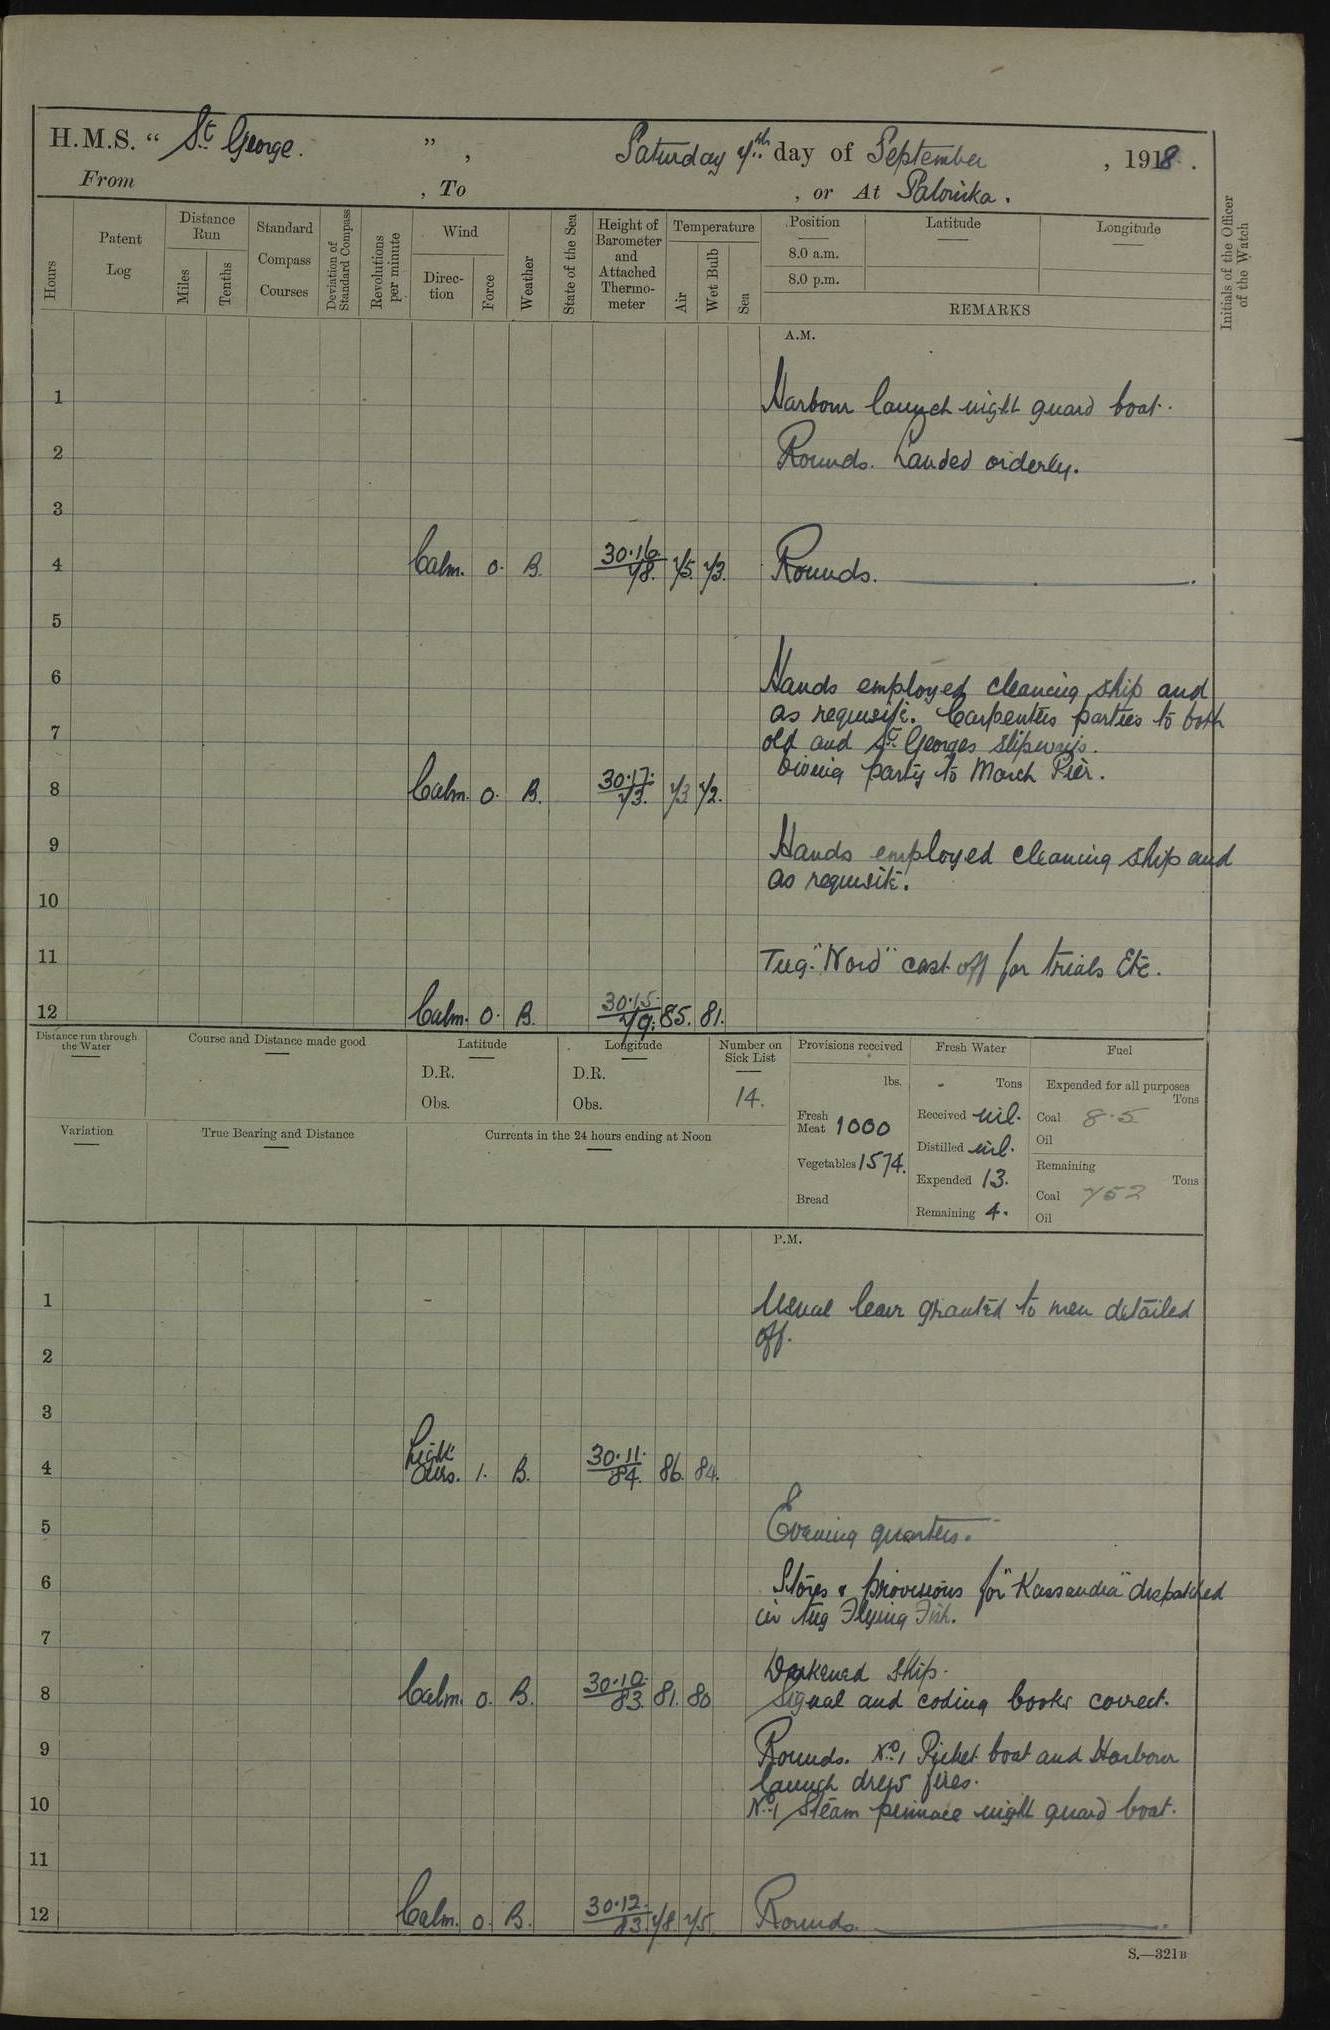 H.M.S. “ St. George. ” , Saturday 7th day of September , 1918 .
From , To , or At Salonika .
Hours
Patent Log
Distance Run
Miles
Tenths
Standard Compass Courses
Deviation of Standard Compass
Revolutions per minute
Wind
Direction
Force
Weather
State of the Sea
Height of Barometer and Attached Thermometer
Temperature
Air
Wet Bulb
Sea
Position
8.0 a.m.
8.0 p.m.
Latitude
Longitude
REMARKS
Initials of the Officer of the Watch
A.M.
1 Harbour launch night guard boat.
2 Rounds. Landed orderly.
3
4 Calm. 0. B. 30.16 78. 75. 73. Rounds.
5
6 Hands employed cleaning ship and
as requisite. Carpenters parties to both
7 old and St. Georges slipways.
party to March Pier.
8 Calm. 0. B. 30.17. 73. 73 72.
9 Hands employed cleaning ship and
as requisite.
10
11 Tug "Nord" cast off for trials Etc.
12 Calm. 0. B. 30.15 79. 85. 81.
Distance run through the Water
Course and Distance made good
Latitude
D.R.
Obs.
Longitude
D.R.
Obs.
Number on Sick List
14.
Provisions received
lbs.
Fresh Meat 1000
Vegetables 1574.
Bread
Fresh Water
Tons
Received nil.
Distilled nil.
Expended 13.
Remaining 4.
Fuel
Expended for all purposes
Tons
Coal 8.5
Oil
Remaining
Tons
Coal 752
Oil
Variation
True Bearing and Distance
Currents in the 24 hours ending at Noon
P.M.
1 Usual leave granted to men detailed
off.
2
3
4 Light airs. 1. B. 30.11. 84. 86. 84.
5 Evening quarters.
6 Stores & provisions for "Kassandra" dispatched
in tug Flying Fish.
7
Darkened ship.
8 Calm. 0. B. 30.10. 83. 81. 80 Signal and coding books correct.
9 Rounds. No. 1 Picket boat and Harbour
launch drew fires.
10 No. 1 Steam pinnace night guard boat.
11
12 Calm. 0. B. 30.12. 83. 78. 75. Rounds.
S.—321B